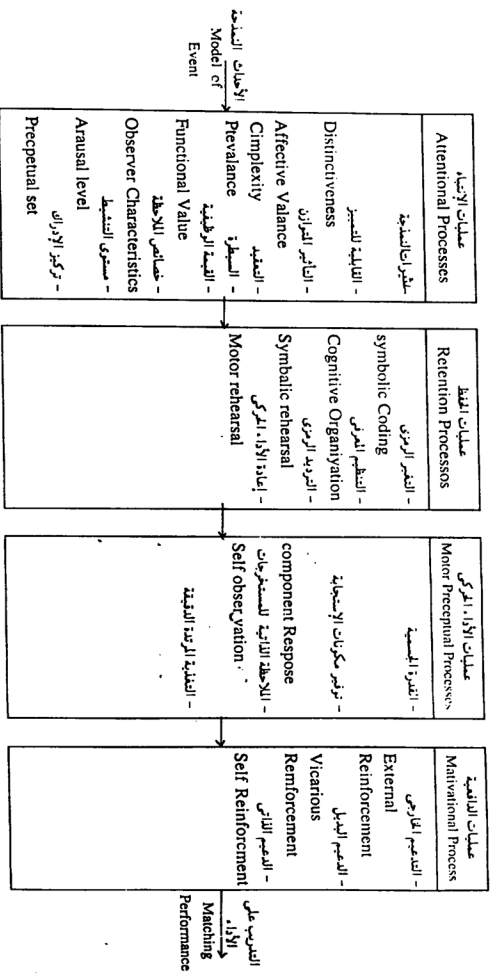 الأحداث النمذجة
Model of
Event
عمليات الإنتباه
Attentional Processes
مثيرات النمذجة
- القابلية للتمييز
Distinctiveness
- التأثير المتوازن
Affective Valance
- التعقيد
Cimplexity
- السيطرة
Ptevalance
- القيمة الوظيفية
Functional Value
- خصائص اللاحظة
Observer Characteristics
- مستوى التنشيط
Arausal level
- تركيز الإدراك
Precpetual set
عمليات الحفظ
Retention Processos
- التغير الرمزى
symbolic Coding
- التنظيم المعرفى
Cognitive Organiyation
- الترديد الرمزى
Symbalic rehearsal
- إعادة الأداء الحركى
Motor rehearsal
عمليات الأداء الحركى
Motor Preceptual Processes
- القدرة الجسمية
- توفير مكونات الإستجابة
component Respose
- اللاحظة الذاتية للمستخرجات
Self observation
- التغذية المرتدة الدقيقة
عمليات الدافعية
Mativational Process
- التدعيم الخارجى
External
Reinforcement
- الدعيم البديل
Vicarious
Remforcement
- الدعيم الذاتى
Self Reinforcment
التدريب على
الأداء
Matching
Performance